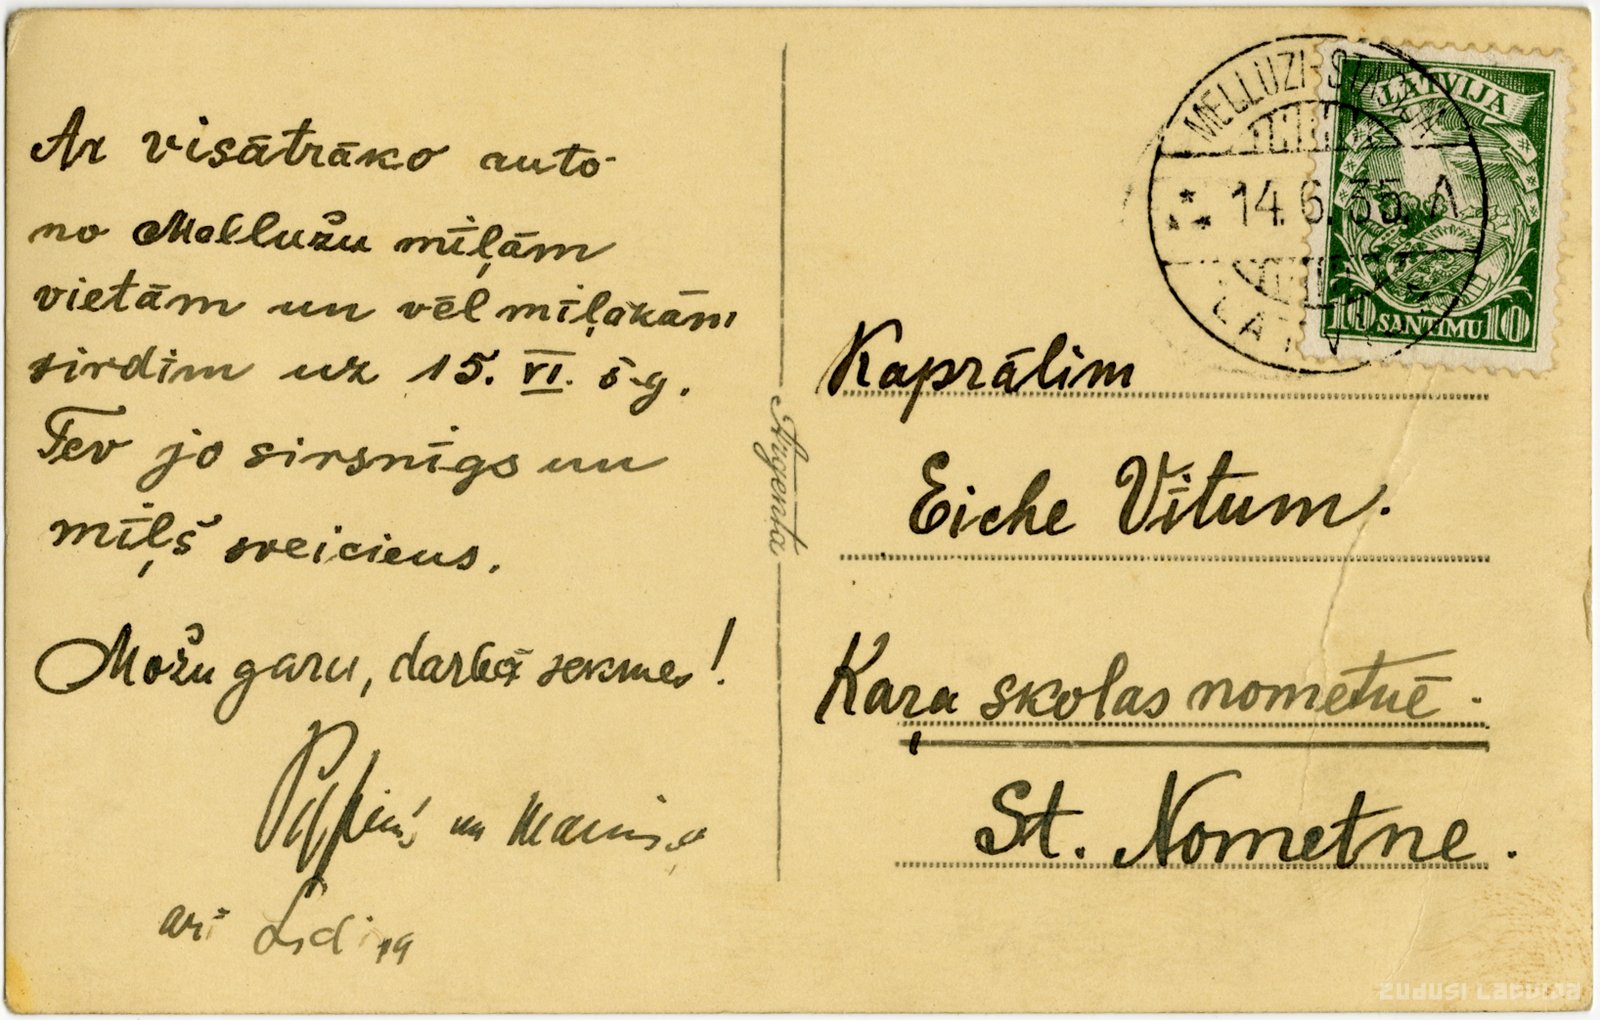 Ar visātrāko auto
no Mellužu mīļām
vietām un vēl mīļākām
sirdīm uz 15. VI. š.g.
Tev jo sirsnīgs un
mīļš sveiciens.
Možu garu, darbā sekmes!
un
arī Lidija
Argenta
MELLUZI-STACIJA
14.6.35. A
LATVIJA
LATVIJA
10 SANTIMU 10
Kaprālim
Eiche Vītum.
Kaŗa skolas nometnē.
St. Nometne.
ZUDUSI LATVIJA